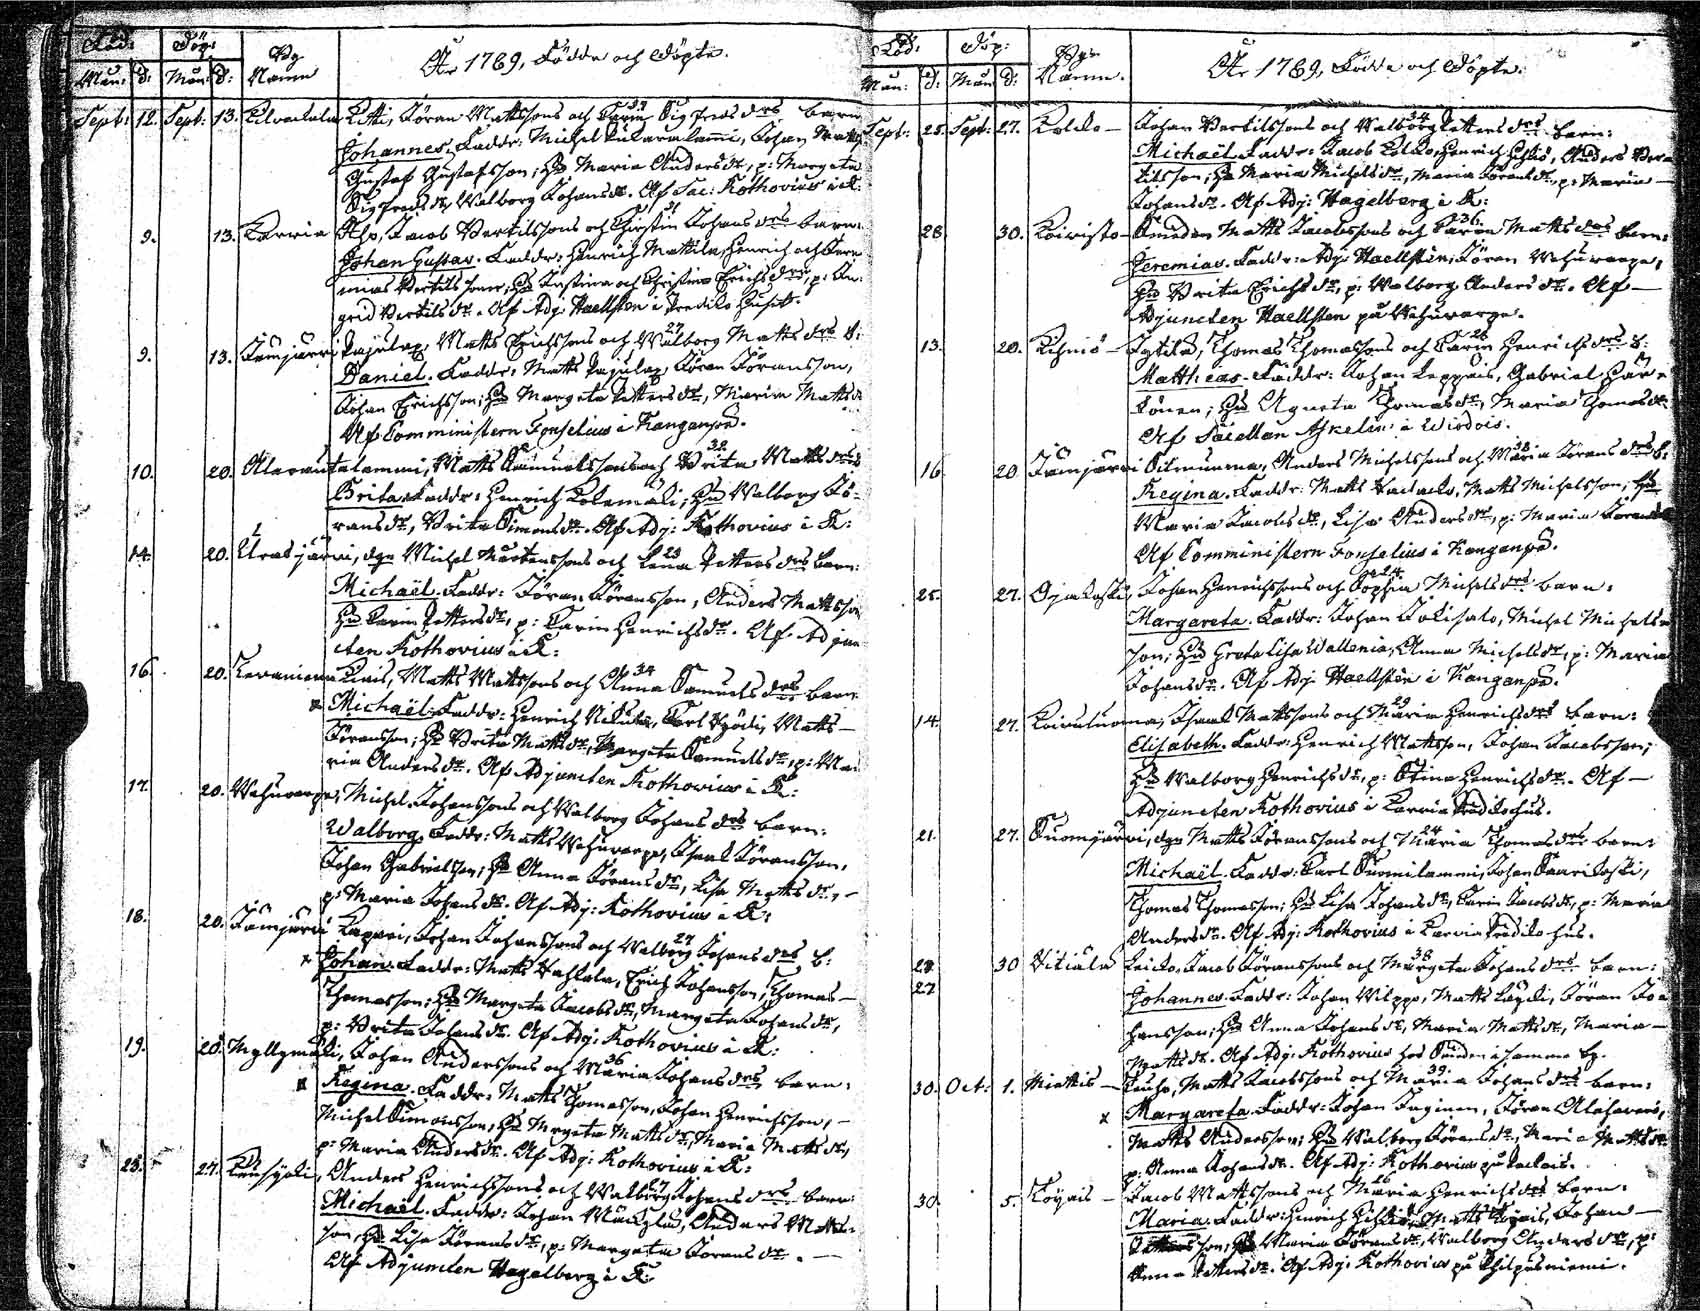 Föd: Döp:
Mån: d: Mån: d: By Namn
År 1789, Födde och Döpte.
Sept: 12. Sept: 13. Kilvakala Kitti, Jöran Mattssons och Carin 39 Sigfreds drs barn
Johannes. Faddr: Michel Kulavalammi, Johan Matts
Gustaf Gustafsson; Hu Maria Anders dr, p: Margeta
Sigfreds dr Walborg Johans dr. Af Sac: Kothovius i K:
9. 13. Karvia Alho, Jacob Bertilssons och Christin Johans drs barn:
Johan Gustav. Faddr: Henrich Mattila, Henrich och Jere
mias Bertils söner; Hu Justina och Christina Erichs drr, p: In
grid Bertils dr. Af Adj: Haellsten i Prediko Huset.
9. 13. Jämijärvi Pajulax, Matts Erichssons och Walborg 27 Matts drs b:
Daniel. Faddr: Matts Pajulax, Jöran Jöransson,
Johan Erichsson; Hu Margeta Petters dr, Maria Matts dr
Af Comministern Fonselius i Kanganpä.
10. 20. Alarautalammi, Matts Samuelssons och Brita 32 Matts drs
Brita. Faddr: Henrich Kolemäki; Hu Walborg Jö-
rans dr, Brita Simons dr. Af Adj: Kothovius i K:
14. 20. Uradjärvi, dgn Michel Mårtenssons och Lena 23 Petters drs barn:
Michaël. Faddr: Jöran Jöransson, Anders Mattsson
Hu Carin Petters dr, p: Carin Henrichs dr. Af Adjun
cten Kothovius i K:
16. 20. Leraniema Kiris, Matts Mattssons och Anna 34 Samuels drs barn
x Michaël. Faddr: Henrich Nikula, Carl Hyödi, Matts
Jöransson; Hu Brita Matts dr, Margeta Samuels dr, p: Ma
ria Anders dr. Af Adjuncten Kothovius i K:
17. 20. Wahuvarpe, Michel Johanssons och Walborg Johans drs barn:
Walborg. Faddr: Matts Wahuvarpe, Isaac Jöransson,
Johan Gabrielsson; Hu Anna Jörans dr, Lisa Matts dr,
p: Maria Johans dr. Af Adj: Kothovius i K:
18. 20. Jämijärvi Kappari, Johan Johanssons och Walborg 27 Johans drs b:
x Johan. Faddr: Matts Hahkala, Erich Johansson, Thomas
Thomasson; Hu Margeta Jacobs dr, Margeta Johans dr,
p: Brita Johans dr. Af Adj: Kothovius i K:
19. 20. Myllymäki, Johan Anderssons och Maria 36 Johans drs barn:
x Regina. Faddr: Matts Thomasson, Johan Henrichsson,
Michel Simonsson, Hu Mrgeta Matts dr, Maria Matts dr,
p: Maria Anders dr. Af Adj: Kothovius i K:
23. 27. Anders Henrichssons och Walborg 27 Johans drs barn:
Michaël. Faddr: Johan Anders Matts
son, Hu Lisa Jörans dr, p: Margeta Jörans dr.
Af Adjuncten Hagelberg i K:
Föd: Döp:
Mån: d: Mån d: Byn Namn.
År 1789, Födde och Döpte.
Sept: 25. Sept: 27. Kolko Johan Bertilssons och Walborg 34 Petters drs barn:
Michaël. Faddr: Jacob Kolko, Henrich Anders Ber
tilsson; Hu Maria Michels dr, Maria Jörans dr, p: Maria
Johans dr. Af Adj: Hagelberg i K:
28. 30. Koivisto Smeden Matts Jacobssons och Carin 36 Matts drs barn:
Jeremias. Faddr: Adj: Haellsten, Jöran Wahuvarpe,
Hu Brita Erichs dr, p: Walborg Anders dr. Af
Adjuncten Haellsten på Wahuvarpe.
13. 20. Kihniö Thomas Thomassons och Carin 26 Henrichs drs b:
Matthias. Faddr: Johan Leppäis, Gabriel
Hu Agneta Thomas dr, Maria Thomas dr.
Af Sacellan Askelin i Wirdois.
16. 20 Jämijärvi Silmunma, Anders Michelssons och Maria 32 Jörans drs b:
Regina. Faddr: Matts Matts Michelsson; Hu
Maria Jacobs dr, Lisa Anders dr, p: Maria Jörans dr
Af Comministern Fonselius i Kanganpä.
25. 27. Ojakoski, Johan Henrichssons och Sophia 24 Michels drs barn:
Margareta. Faddr: Johan Jokisalo, Michel Michels
son; Hu Greta Lisa Wallenia, Anna Michels dr, p: Maria
Johans dr. Af Adj: Haellsten i Kanganpä.
14. 27. Koivuluoma, Isaac Mattssons och Maria 23 Henrichs drs barn:
Elisabeth. Faddr: Henrich Mattsson, Johan Jacobsson;
Hu Walborg Henrichs dr, p: Stina Henrichs dr. Af
Adjuncten Kothovius i Karvia Predikohus.
21. 27. Suomijärvi, dgn Matts Jöranssons och Maria 24 Thomas drs barn:
Michaël. Faddr: Carl Suomilammi, Johan Saarikoski,
Thomas Thomasson; Hu Lisa Johans dr, Carin Jacobs dr, p: Maria
Anders dr. Af Adj: Kothovius i Karvia Predikohus.
27 30 Vitiala Leicko, Jacob Jöranssons och Margeta 38 Johans drs barn:
27 Johannes. Faddr: Johan Wilppo, Matts Jöran Jo
hansson; Hu Anna Johans dr, Maria Matts dr, Maria
Matts dr. Af Adj: Kothovius hos Smeden i samma by.
30. Oct: 1. Miettis Matts Jacobssons och Maria 39 Johans drs barn:
x Margareta. Faddr: Johan Inginen, Jöran Alahaveri,
Matts Andersson; Hu Walborg Jörans dr, Maria Matts dr
p: Anna Johans dr. Af Adj: Kothovius på
30. 5. Köyris Jacob Mattssons och Maria 26 Henrichs drs barn:
Maria. Faddr: Henrich Matts Köyris, Johan
Hu Maria Jörans dr, Walborg Anders dr, p:
Anna Petters dr. Af Adj: Kothovius på Philpusniemi.